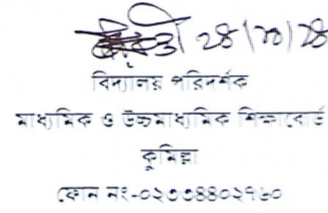 ২৪/১০/২৪
বিদ্যালয় পরিদর্শক
মাধ্যমিক ও উচ্চমাধ্যমিক শিক্ষাবোর্ড
কুমিল্লা
ফোন নং-০২৩৩৪৪০২৭৬০